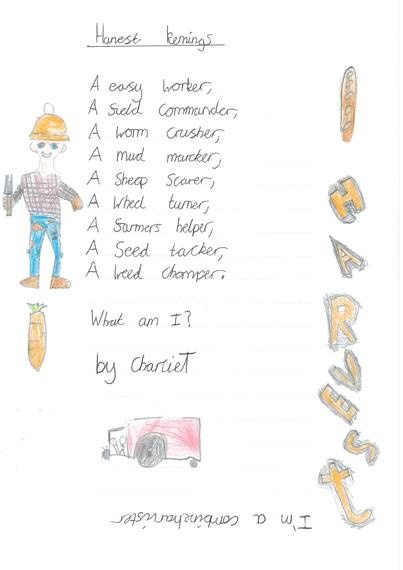 Harest kenings
A easy worker,
A field commander,
A worm crusher,
A mud marcker,
A Sheep Scarer,
A Wheel turner,
A farmers helper,
A Seed tacker,
A weed chomper.
What am I?
by CharlieT
I'm a combineharvister
HARVESt